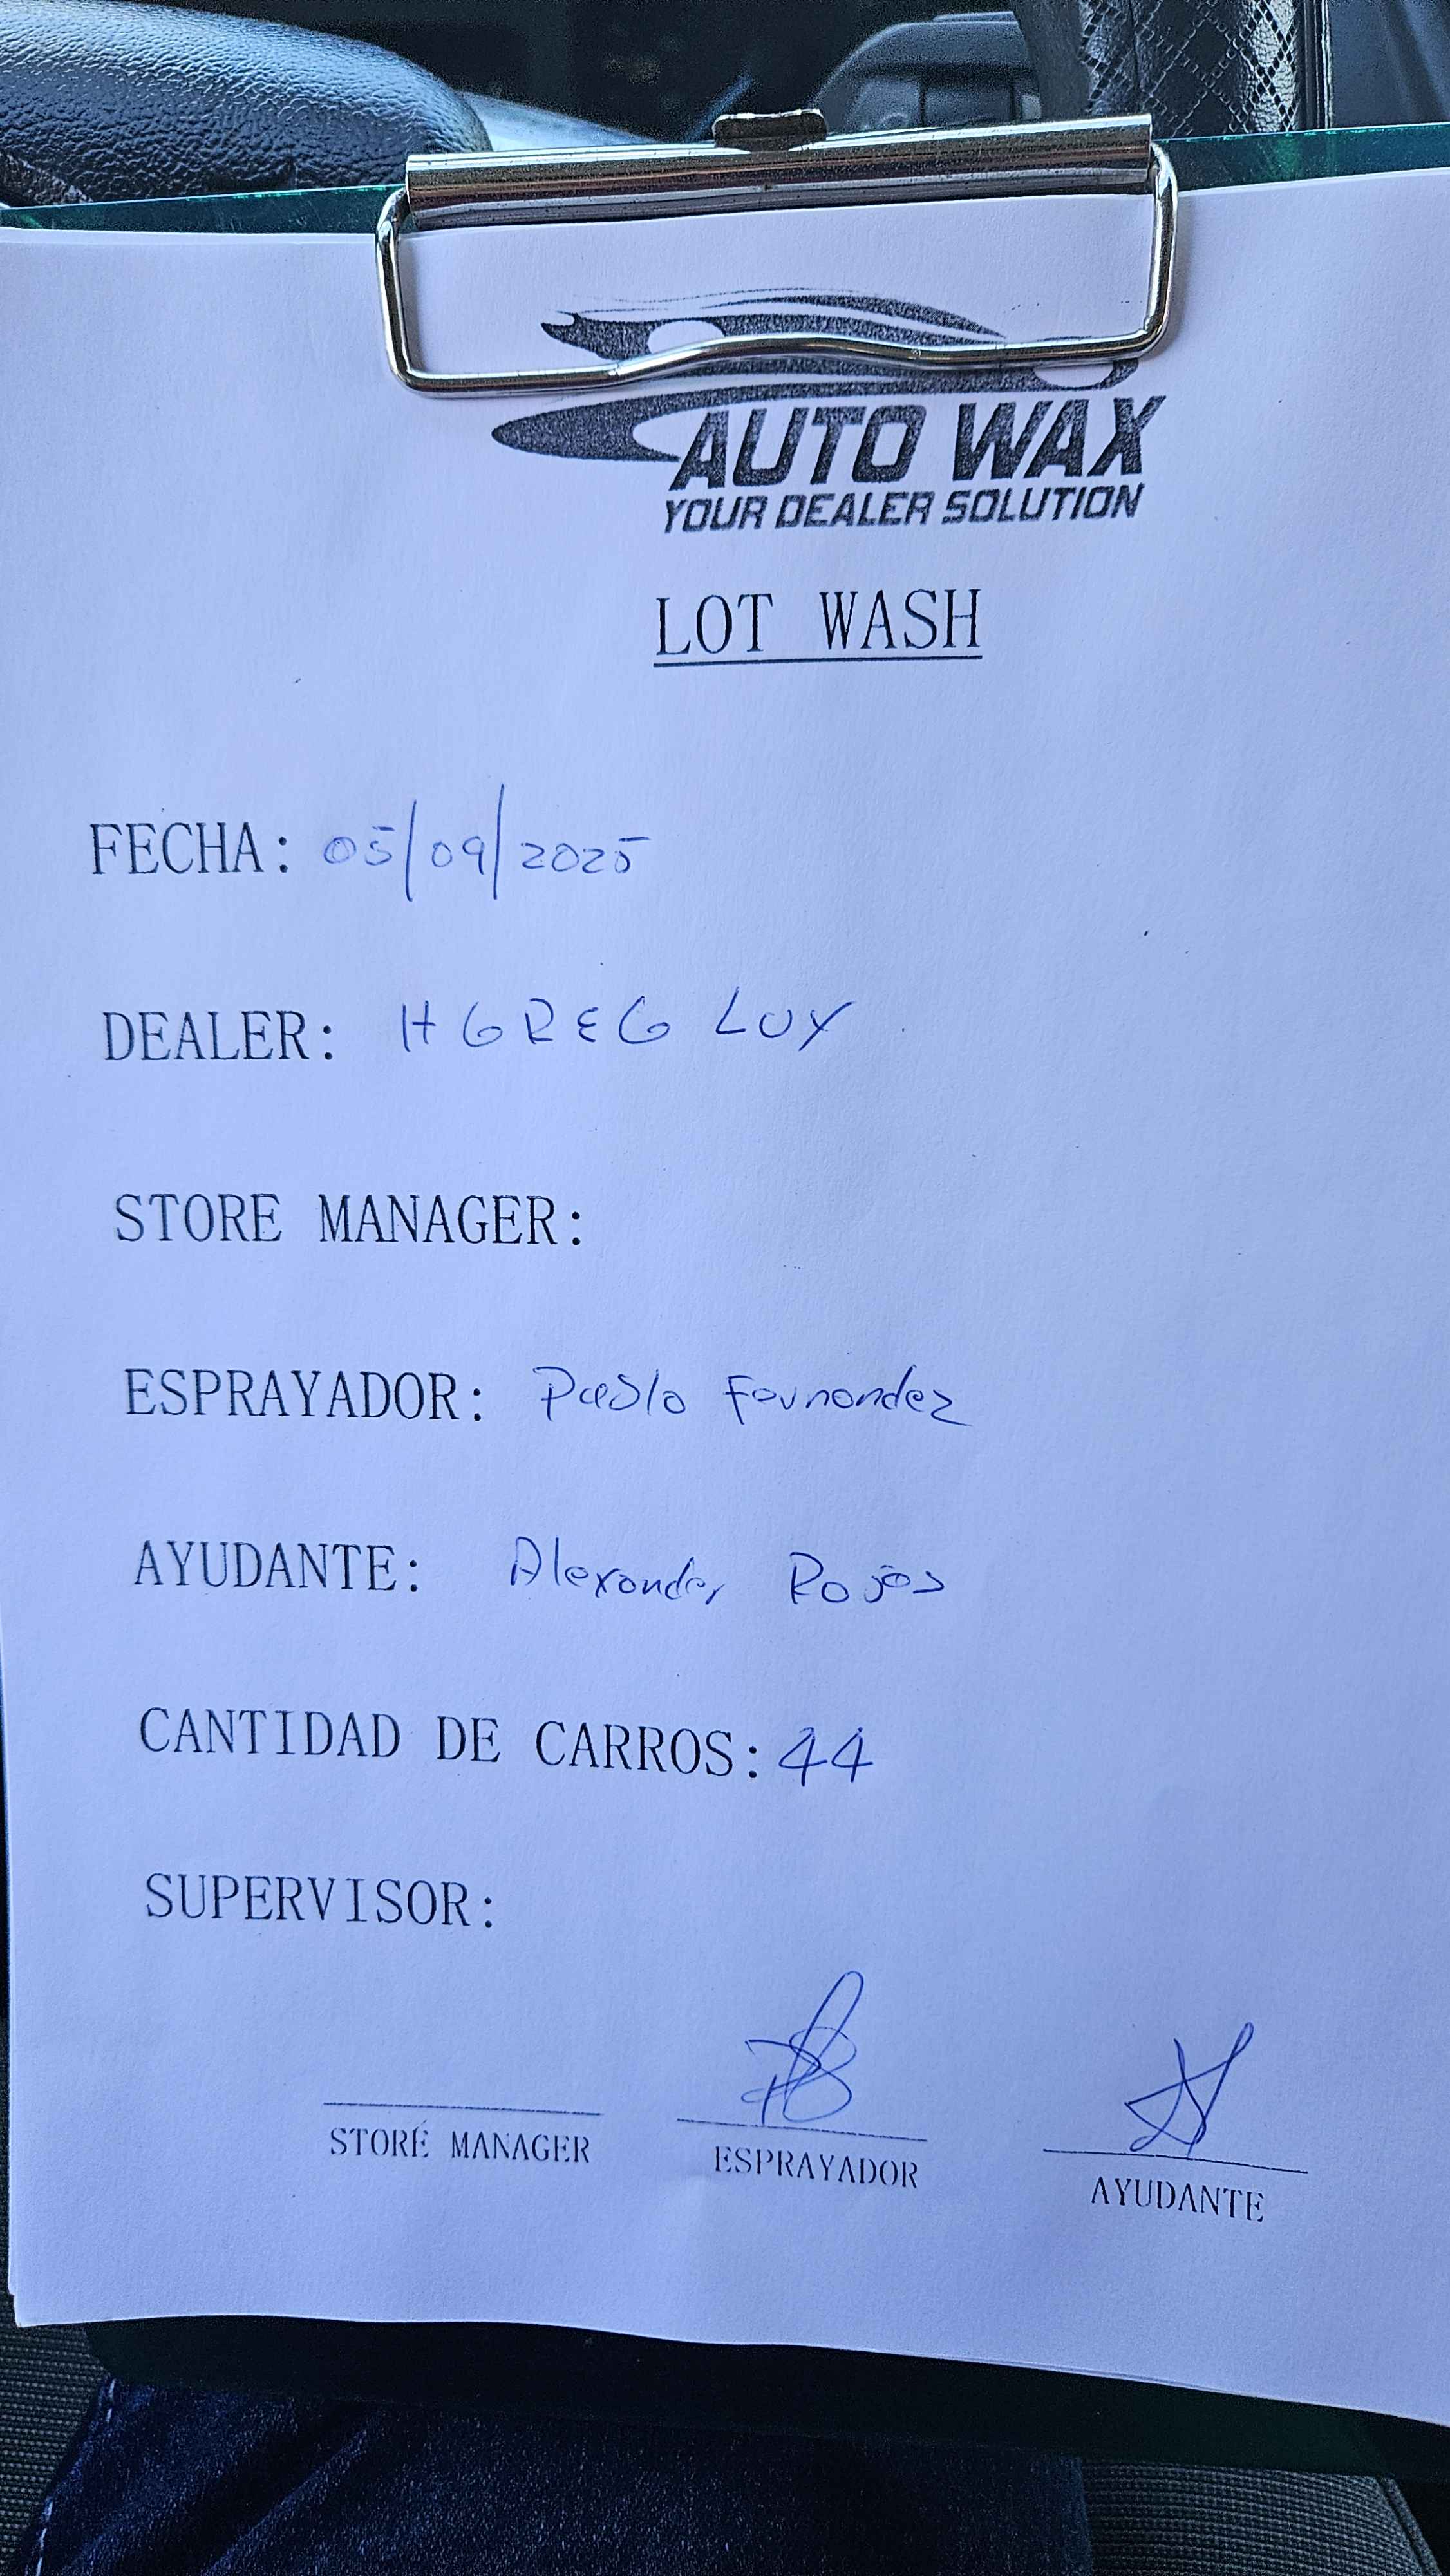 AUTO WAX
YOUR DEALER SOLUTION
LOT WASH
FECHA: 05/09/2025
DEALER: HGREG LUX
STORE MANAGER:
ESPRAYADOR: Pablo Fernandez
AYUDANTE: Alexander Rojas
CANTIDAD DE CARROS: 44
SUPERVISOR:
STORE MANAGER ESPRAYADOR AYUDANTE